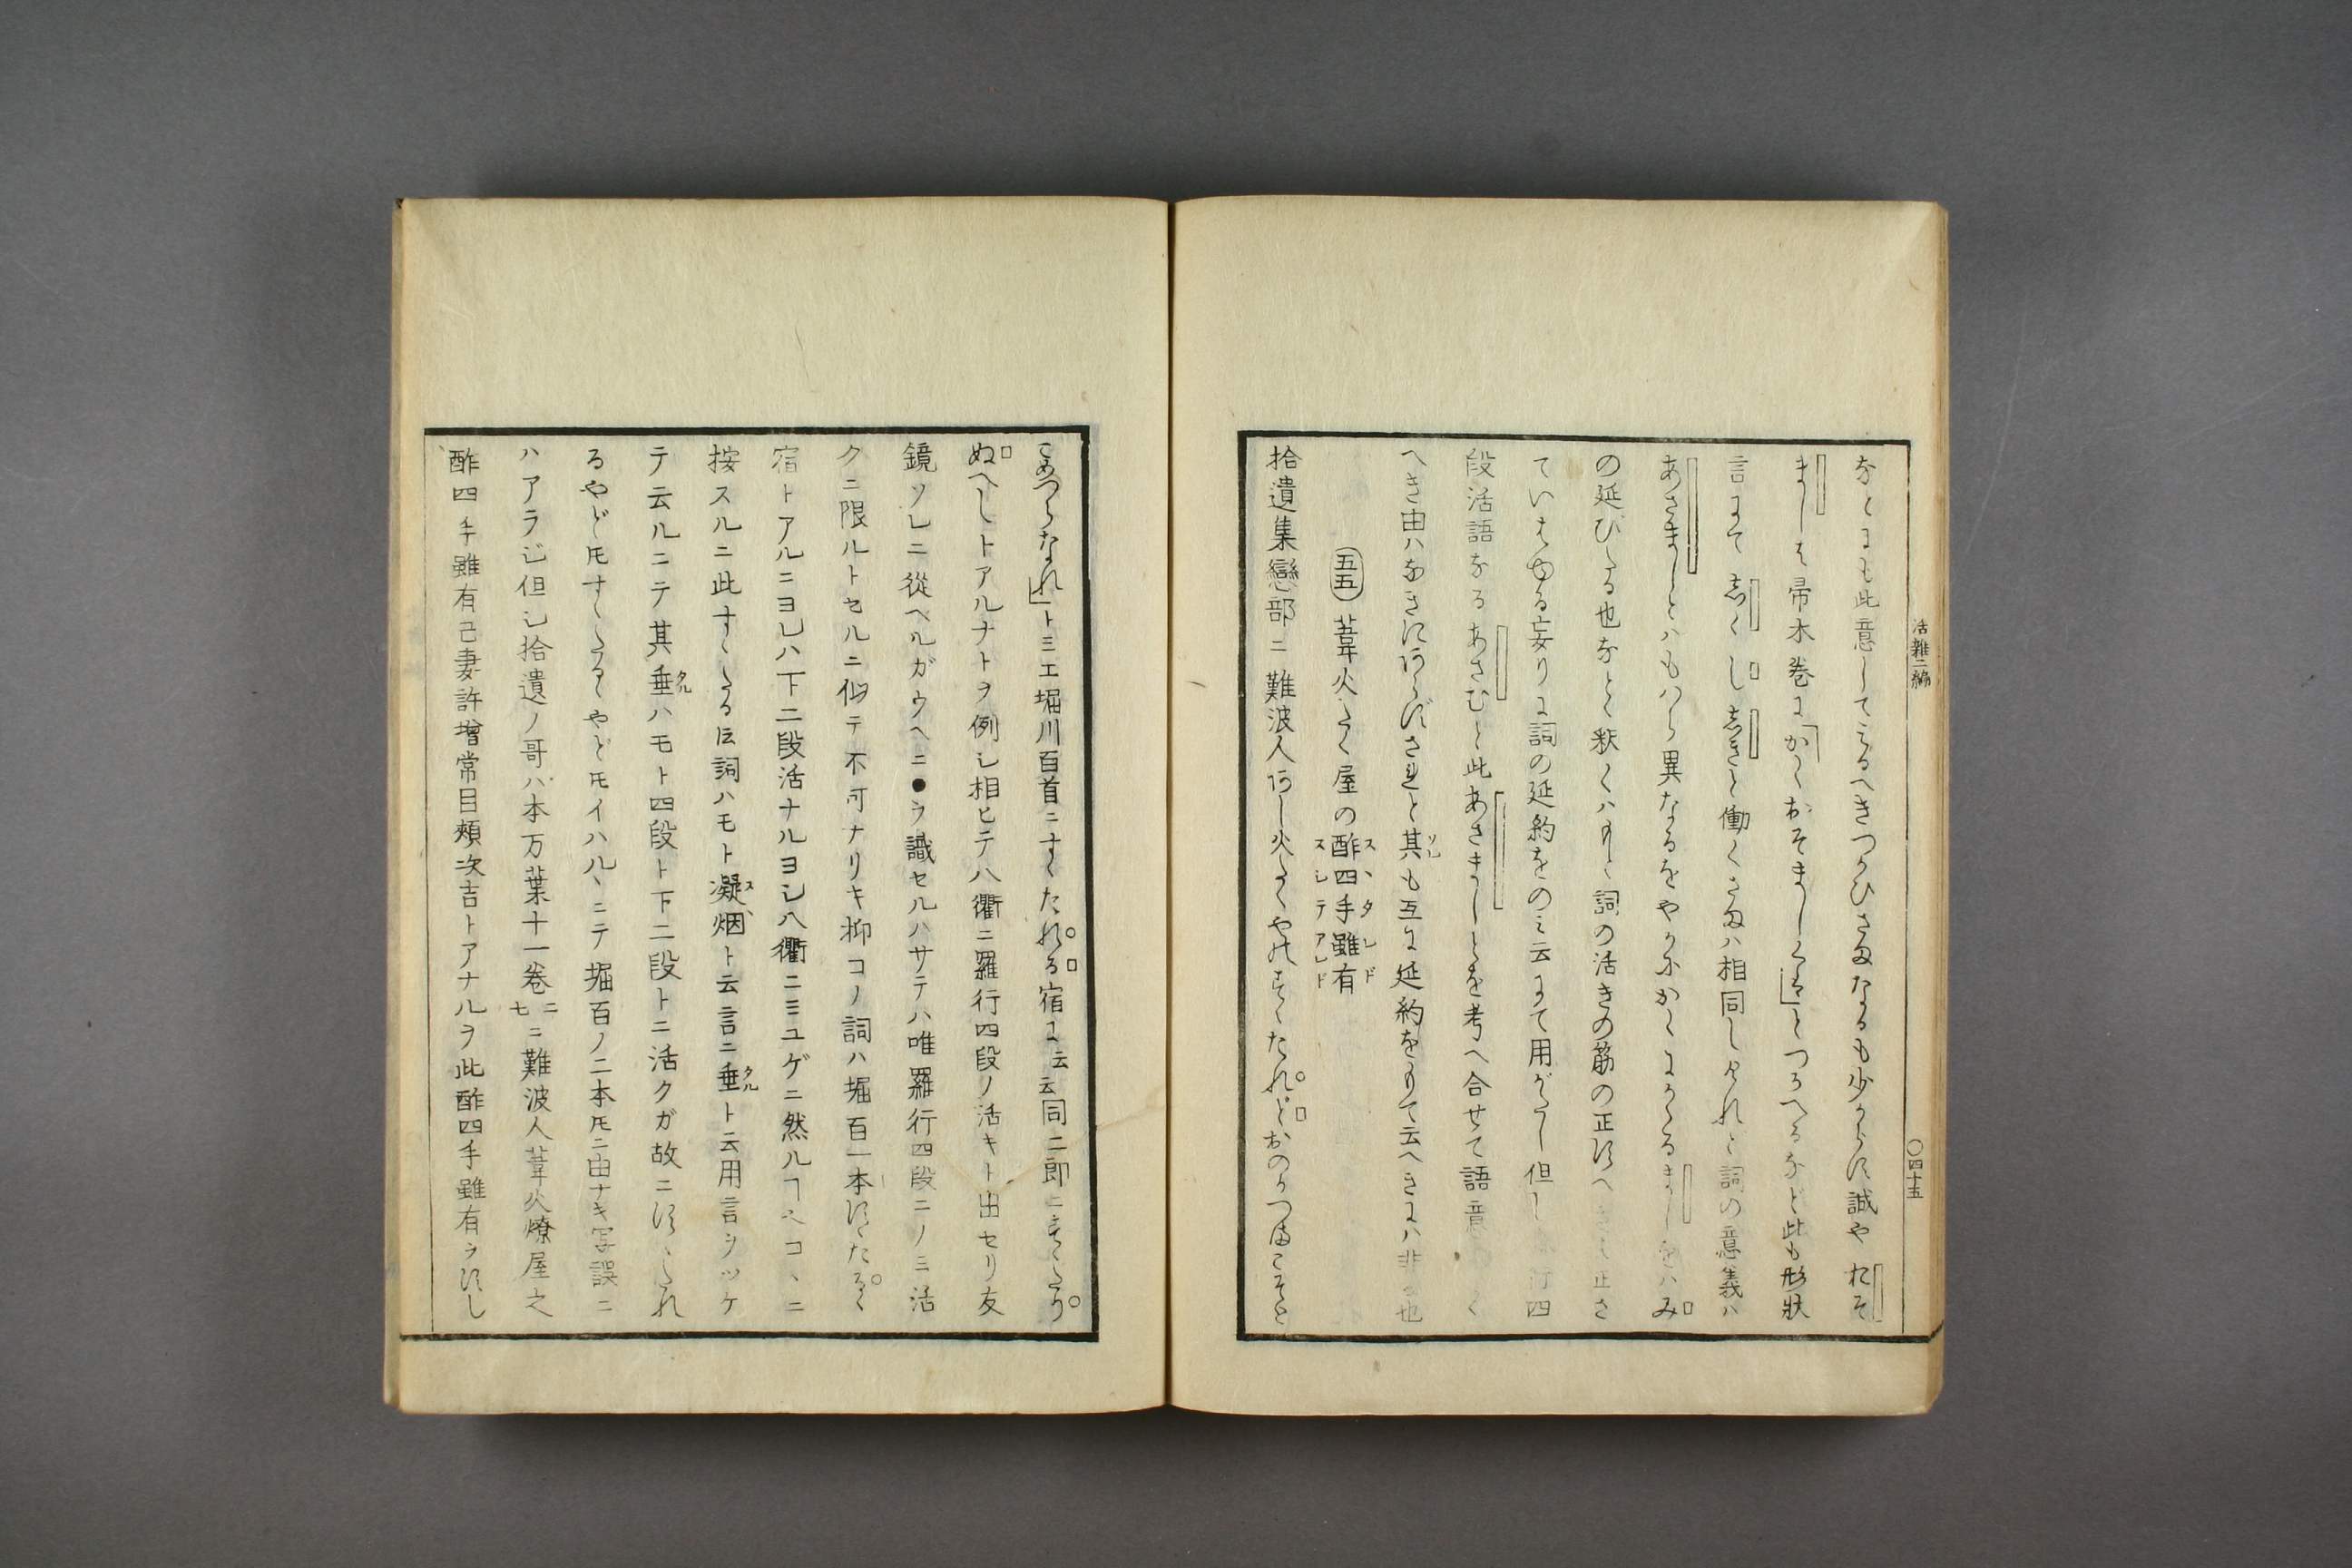 活雑二編
〇四十五
なとにも此意してみるへきつかひさまなるも少からす誠やおそ
ましは帚木巻に「かくおそましくは」とつかへるなど此も形状
言にてしくししきと働くさまハ相同しけれと詞の意義ハ
あさましとハもはら異なるをやかにかくにかゝるましをハみ
の延びたる也なとく釈くハ詞の活きの筋の正さ
ていはゆる妄りに詞の延約をのミ云にて用がたし但し 四
段活語なるあさむと此あさましとを考へ合せて語意 く
へき由ハなきにあらずされと其も互に延約をもて云へきにハ非る也
五五 葦火たく屋の酢四手雖有
スヽタレド
スシテアレド
拾遺集戀部ニ難波人あし火たくやはすゝたれどおのかつまこそと
こめつらなれ」トミエ堀川百首ニすゝたれる宿に云云同二郎ニすゝたり
ぬへしトアルナトヲ例シ相ヒテ八衢ニ羅行四段ノ活キト出セリ友
鏡ソレニ從ヘルガウヘニ●ヲ識セルハサテハ唯羅行四段ニノミ活
クニ限ルトセルニ似テ不可ナリキ抑コノ詞ハ堀百一本すゝたるゝ
宿トアルニヨレハ下二段活ナルヨシ八衢ニミユゲニ然ルヿヘコヽニ
按スルニ此すゝたる圧詞ハモト凝烟ト云言ニ垂ト云用言ヲツケ
テ云ルニテ其垂ハモト四段ト下二段トニ活クガ故ニすゝたれ
るやど圧すゝたるゝやと圧イハルヽニテ堀百ノ二本圧ニ由ナキ写誤ニ
ハアラジ但シ拾遺ノ哥ハ本万葉十一巻二七ニ難波人葦火燎屋之
酢四手雖有己妻許増常目頬次吉トアナルヲ此酢四手雖有ヲすし